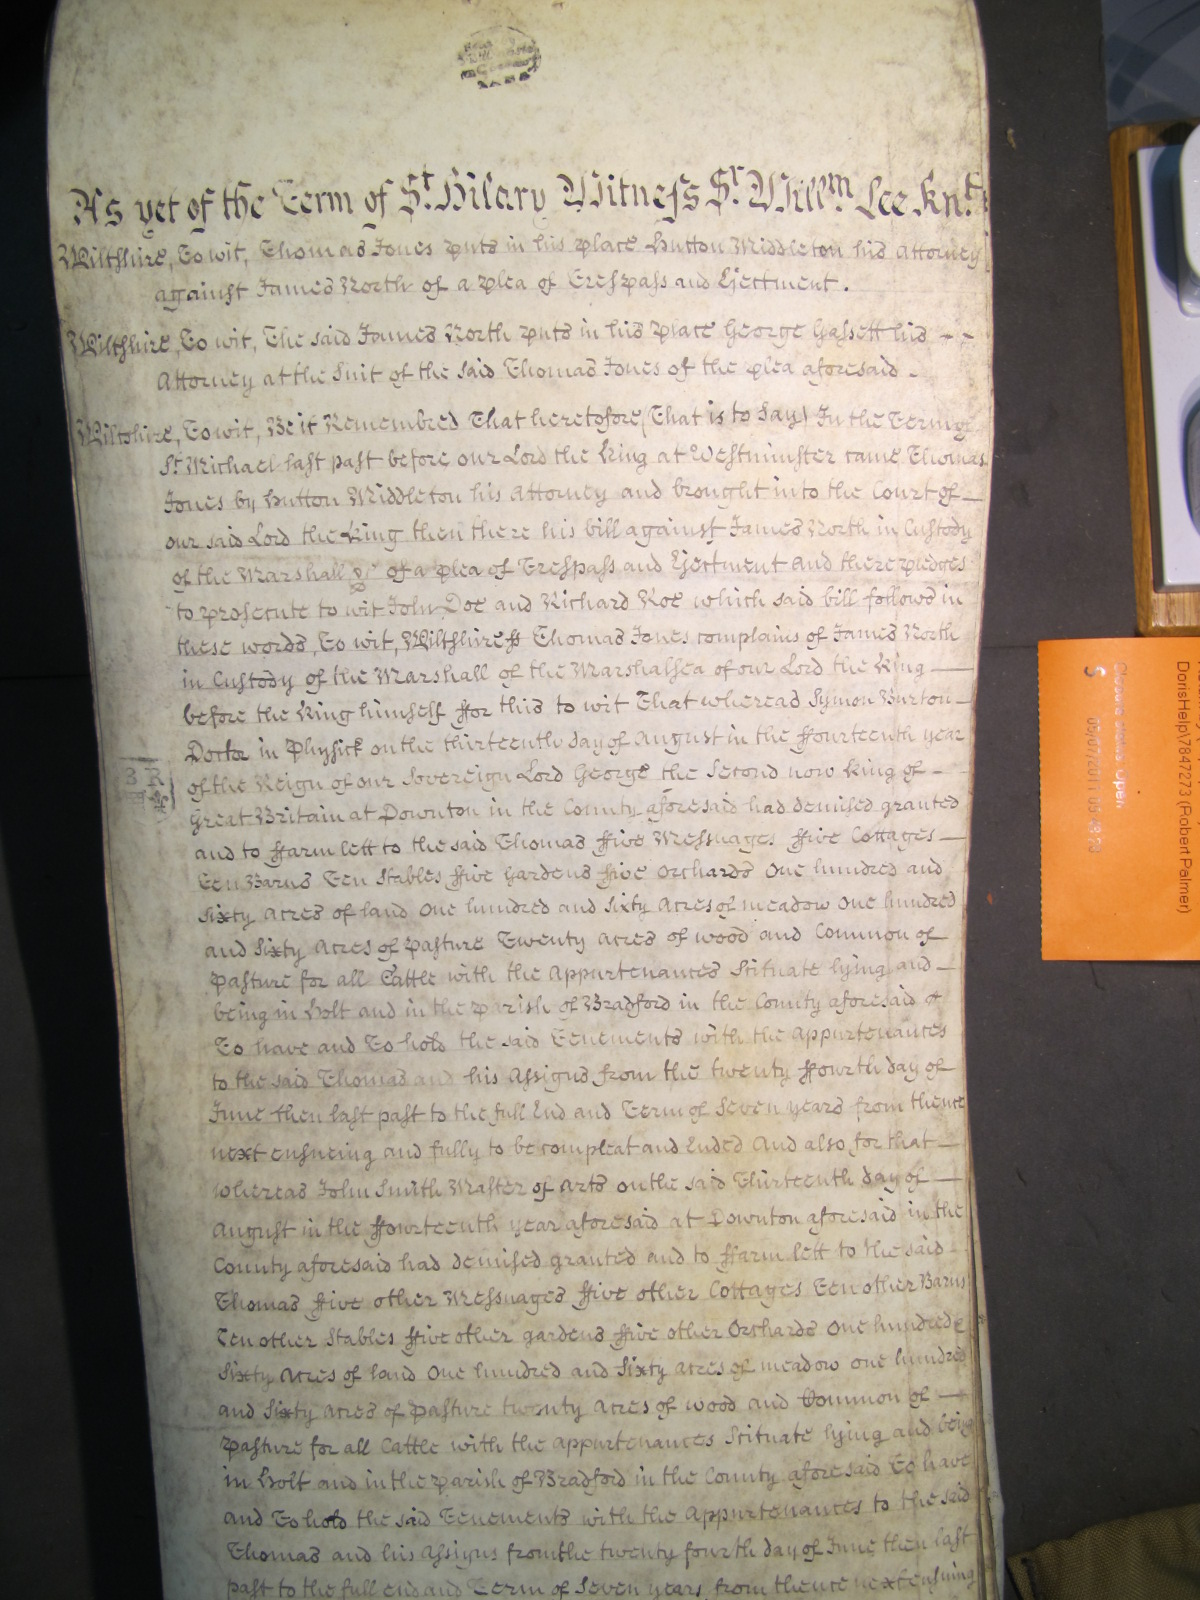 As yet of the Term of St. Hilary Witness Sr. Willm. Lee Knt.
Wiltshire, To wit, Thomas Jones puts in his place Hutton Middleton his Attorney
against James North of a plea of Trespass and Ejectment.
Wiltshire, To wit, The said James North puts in his place George Gassett his
Attorney at the Suit of the said Thomas Jones of the plea aforesaid.
Wiltshire, To wit, Be it Remembred That heretofore (That is to Say) In the Term of
St. Michael last past before our Lord the King at Westminster came Thomas
Jones by Hutton Middleton his Attorney and brought into the Court of
our said Lord the King then there his bill against James North in Custody
of the Marshall &c of a plea of Trespass and Ejectment and there pledges
to prosecute to wit John Doe and Richard Roe which said bill follows in
these words, To wit, Wiltshire ss Thomas Jones complains of James North
in Custody of the Marshall of the Marshalsea of our Lord the King
before the King himself ffor this to wit That whereas Symon Burton
Doctor in Physick on the thirteenth day of August in the ffourteenth year
of the Reign of our Sovereign Lord George the Second now King of
Great Britain at Downton in the County aforesaid had demised granted
and to ffarm lett to the said Thomas ffive Messuages ffive Cottages
Ten Barns Ten Stables ffive Gardens ffive Orchards One hundred and
Sixty Acres of land One hundred and Sixty Acres of meadow One hundred
and Sixty Acres of Pasture Twenty Acres of wood and Common of
Pasture for all Cattle with the Appurtenances Scituate lying and
being in Holt and in the parish of Bradford in the County aforesaid
To have and To hold the said Tenements with the Appurtenances
to the said Thomas and his Assigns from the twenty ffourth day of
June then last past to the full End and Term of Seven years from thence
next ensueing and fully to be compleat and Ended And also for that
whereas John Smith Master of Arts on the said Thirteenth day of
August in the ffourteenth year aforesaid at Downton aforesaid in the
County aforesaid had demised granted and to ffarm lett to the said
Thomas ffive other Messuages ffive other Cottages Ten other Barns
Ten other Stables ffive other gardens ffive other Orchards One hundred &
Sixty Acres of land One hundred and Sixty acres of meadow one hundred
and Sixty Acres of Pasture twenty Acres of wood and Common of
Pasture for all Cattle with the appurtenances Scituate lying and being
in Holt and in the Parish of Bradford in the County aforesaid To have
and To hold the said Tenements with the Appurtenances to the said
Thomas and his Assigns from the twenty fourth day of June then last
past to the full end and Term of Seven years from thence next ensuing
DorisHelp\7847273 (Robert Palmer)